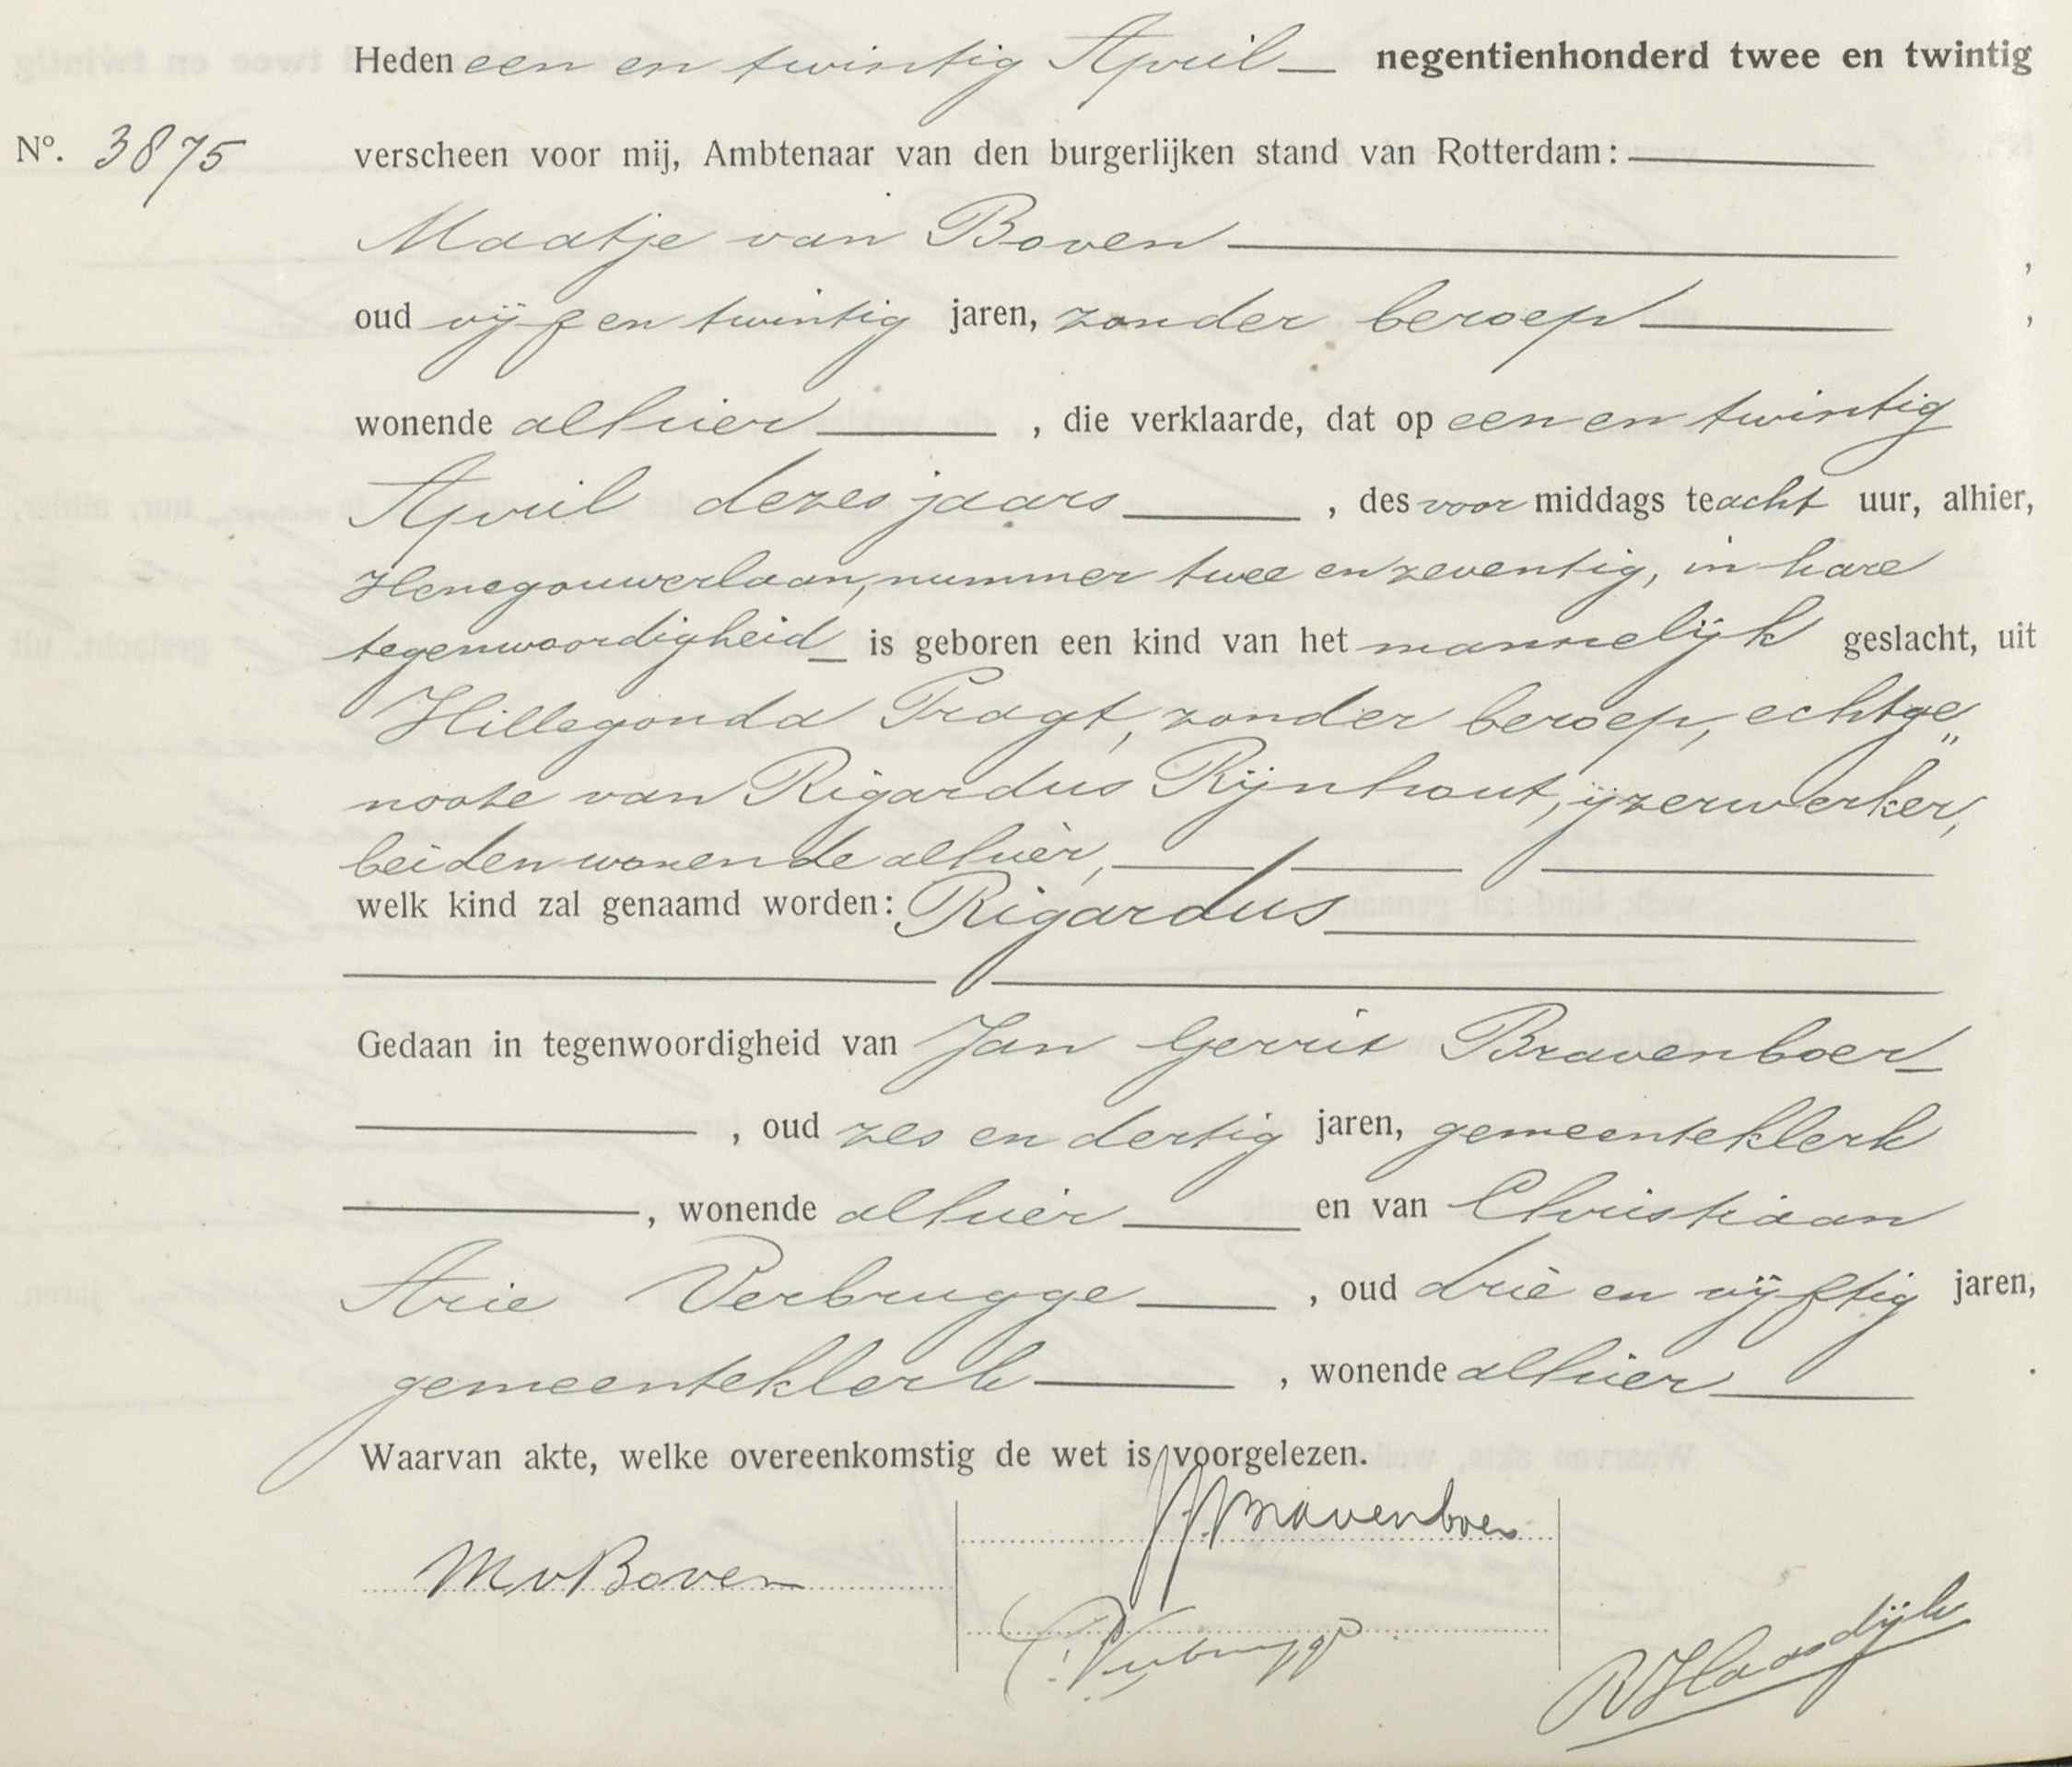 Heden een en twintig April negentienhonderd twee en twintig
Nº. 3875 verscheen voor mij, Ambtenaar van den burgerlijken stand van Rotterdam:
Maatje van Boven ,
oud vijf en twintig jaren, zonder beroep ,
wonende alhier , die verklaarde, dat op een en twintig
April dezes jaars , des voor middags te acht uur, alhier,
Henegouwerlaan, nummer twee en zeventig, in hare
tegenwoordigheid is geboren een kind van het mannelijk geslacht, uit
Hillegonda Pragt, zonder beroep, echtge„
noote van Rigardus Rijnhout, ijzerwerker,
beiden wonende alhier,
welk kind zal genaamd worden: Rigardus
Gedaan in tegenwoordigheid van Jan Gerrit Bravenboer
, oud zes en dertig jaren, gemeenteklerk
, wonende alhier en van Christiaan
Arie Verbrugge , oud drie en vijftig jaren,
gemeenteklerk , wonende alhier .
Waarvan akte, welke overeenkomstig de wet is voorgelezen.
JGBravenboer
M v Boven
CAVerbrugge